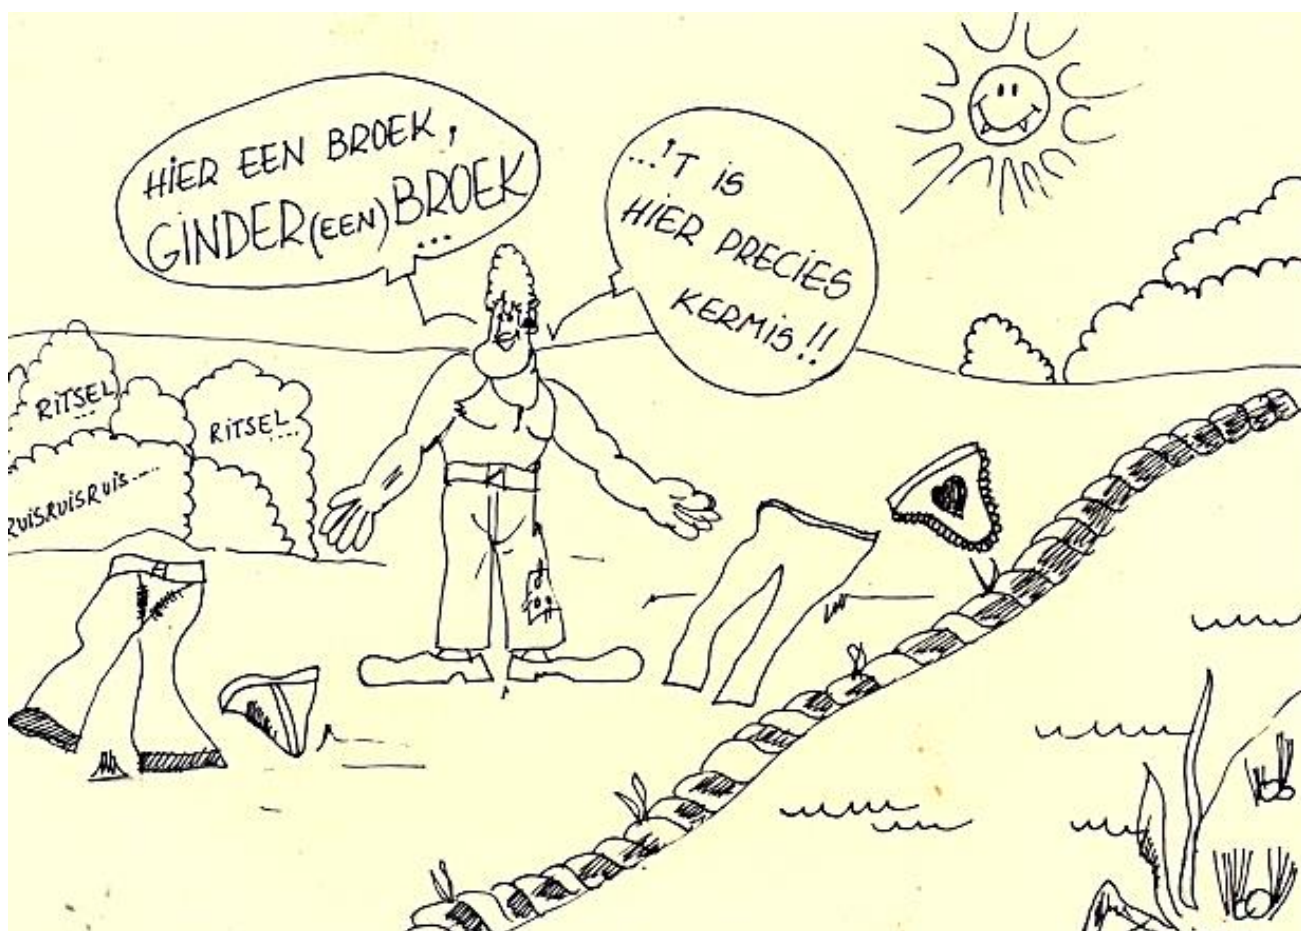 HIER EEN BROEK,
GINDER (EEN) BROEK
...
...'T IS
HIER PRECIES
KERMIS!!
RITSEL...
RITSEL....
RUISRUISRUIS....